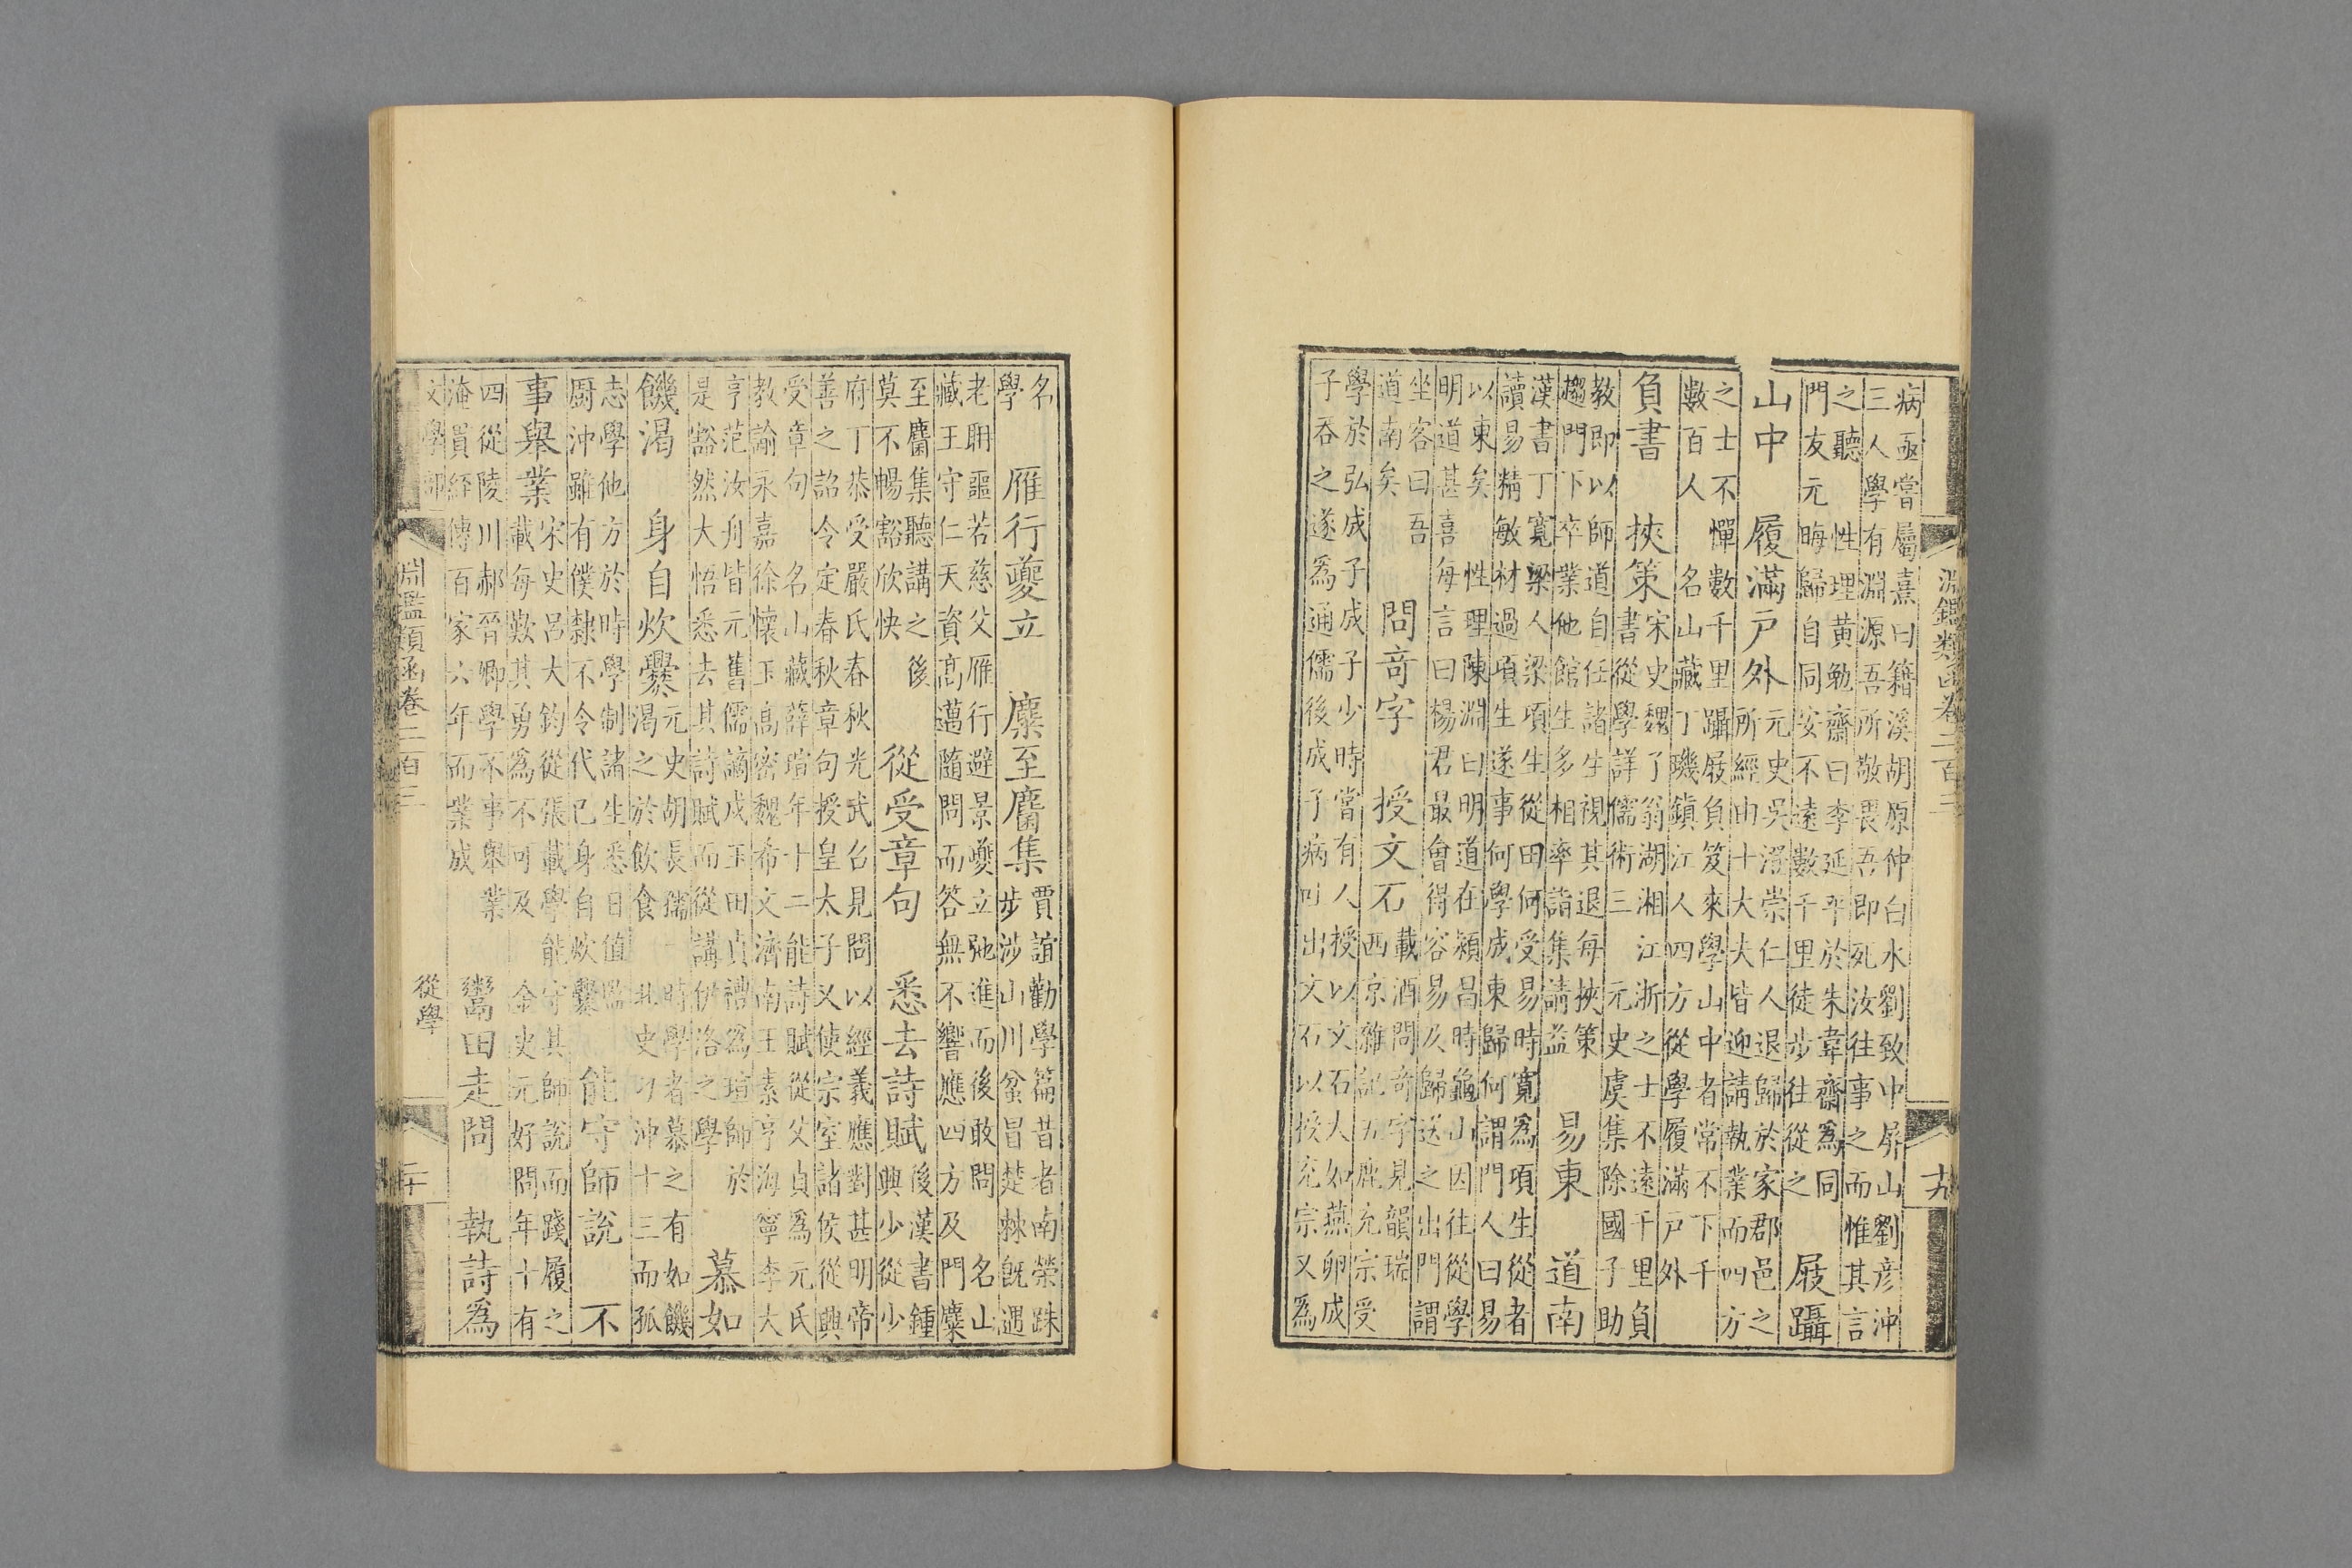 淵鑑類函卷二百三 十九
病亟嘗屬熹曰籍溪胡原仲白水劉致中屏山劉彥沖
三人學有淵源吾所敬畏吾即死汝往事之而惟其言
之聽 性理黃勉齋曰李延平於朱韋齋為同
門友元晦歸自同安不遠數千里徒步往從之
屐躡
山中 履滿戶外
元史吳澄崇仁人退歸於家郡邑之
所經由十大夫皆迎請執業而四方
之士不憚數千里躡屐負笈來學山中者常不下千
數百人 名山藏丁璣鎮江人四方從學履滿戶外
負書 挾策
宋史魏了翁湖湘江浙之士不遠千里負
書從學詳儒術三 元史虞集除國子助
教即以師道自任諸生視其退每挾策
趨門下卒業他館生多相率詣集請益
易東 道南
漢書丁寬梁人梁項生從田何受易時寬為項生從者
讀易精敏材過項生遂事何學成東歸何謂門人曰易
以東矣 性理陳淵曰明道在潁昌時龜山因往從學
明道甚喜每言曰楊君最會得容易及歸送之出門謂
坐客曰吾
道南矣
問奇字 授文石
載酒問奇字見韻瑞
西京雜記五鹿充宗受
學於弘成子成子少時嘗有人授以文石大如燕卵成
子吞之遂為通儒後成子病吐出文石以授充宗又為
名
學
雁行夔立 麋至麕集
賈誼勸學篇昔者南榮跦
步涉山川蚠冒楚棘既遇
老聃噩若慈父雁行避景夔立虵進而後敢問 名山
藏王守仁天資高邁隨問而答無不響應四方及門麋
至麕集聽講之後
莫不暢豁欣快
從受章句 悉去詩賦
後漢書鍾
興少從少
府丁恭受嚴氏春秋光武召見問以經義應對甚明帝
善之詔令定春秋章句授皇太子又使宗室諸侯從興
受章句 名山藏薛瑄年十二能詩賦從父貞為元氏
教諭永嘉徐懷玉高密魏希文濟南王素亨海寧李大
亨范汝舟皆元舊儒謫戍玉田貞禮為瑄師於
是豁然大悟悉去其詩賦而從講伊洛之學
慕如
饑渴 身自炊爨
元史胡長孺一時學者慕之有如饑
渴之於飲食 北史刁沖十三而孤
志學他方於時學制諸生悉日值監
廚沖雖有僕隸不令代己身自炊爨
能守師說 不
事舉業
宋史呂大鈞從張載學能守其師說而踐履之
載每歎其勇為不可及 金史元好問年十有
四從陵川郝晉卿學不事舉業
淹貫經傳百家六年而業成
鬻田走問 執詩為
文學部 淵鑑類函卷二百三 從學 二十